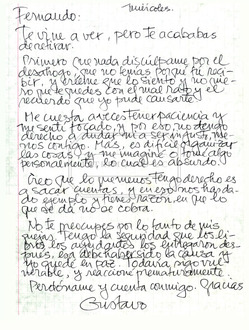 miércoles.
Fernando:
Te vine a ver, pero te acababas
de retirar.
Primero que nada discúlpame por el
desahogo, que no tenías por qué reci-
bir, y créeme que lo siento y no quie-
ro que te quedes con el mal rato y el
recuerdo que yo pude causarte.
Me cuesta a veces tener paciencia y
me sentí tocado, y por eso no tengo
derecho a dudar ni a ser injusto, me-
nos contigo. Mas, es difícil organizar
las cosas, y me imaginé o tomé algo
personalmente, lo cual es absurdo.
Creo que lo que menos tengo derecho es
a sacar cuentas, y en eso nos has da-
do ejemplo y tienes razón, en que lo
que se da no se cobra.
No te preocupes por lo tanto de mis
quejas. Tengo la seguridad que los li-
bros los ayudantes los entregaron des-
pués, esa debe haber sido la causa y
yo quedé en paz. Todavía soy vul-
nerable, y reaccioné prematuramente.
Perdóname y cuenta conmigo. Gracias
Gustavo